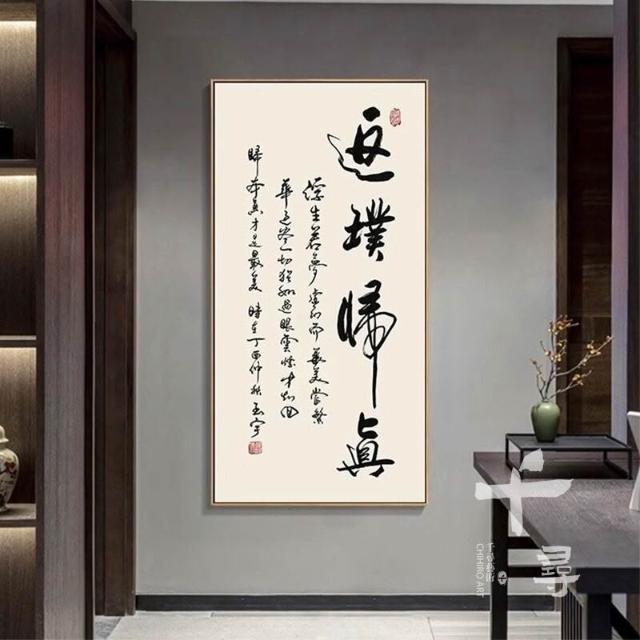 返璞歸真
浮生若夢虛幻而美當繁
華過盡一切猶如過眼雲烟才知回
歸本真才是最美 時在丁酉仲秋玉宇
千尋
CHIHIRO ART